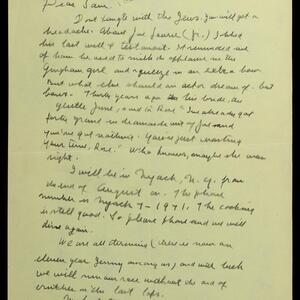 Dear Sam:
Don't tangle with the Jews. You will get a
headache. About Joe Laurie (Jr.) I liked
his last will & testament. It reminded me
of how he used to milk the applause in the
Gingham girl, and squeeze in an extra bow.
But what else should an actor dream of - but
bows. Thirty years ago his bride, the
gentle June, said to Rose "I've already got
forty grand in diamonds out of Joe and
you've got nothing. You're just wasting
your time, Rose." Who knows, maybe she was
right.
I will be in Nyack, N.Y. from
the end of August on. The phone
number is Nyack 7-1971. The cooking
is still good. So please phone and we will
dine again.
We are all
eleven year Jenny among us) and with luck
we will run our race without the aid of
crutches in the last laps.